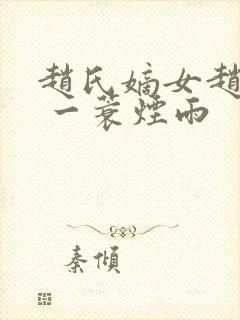 趙氏嫡女趙
一蓑煙雨
秦傾